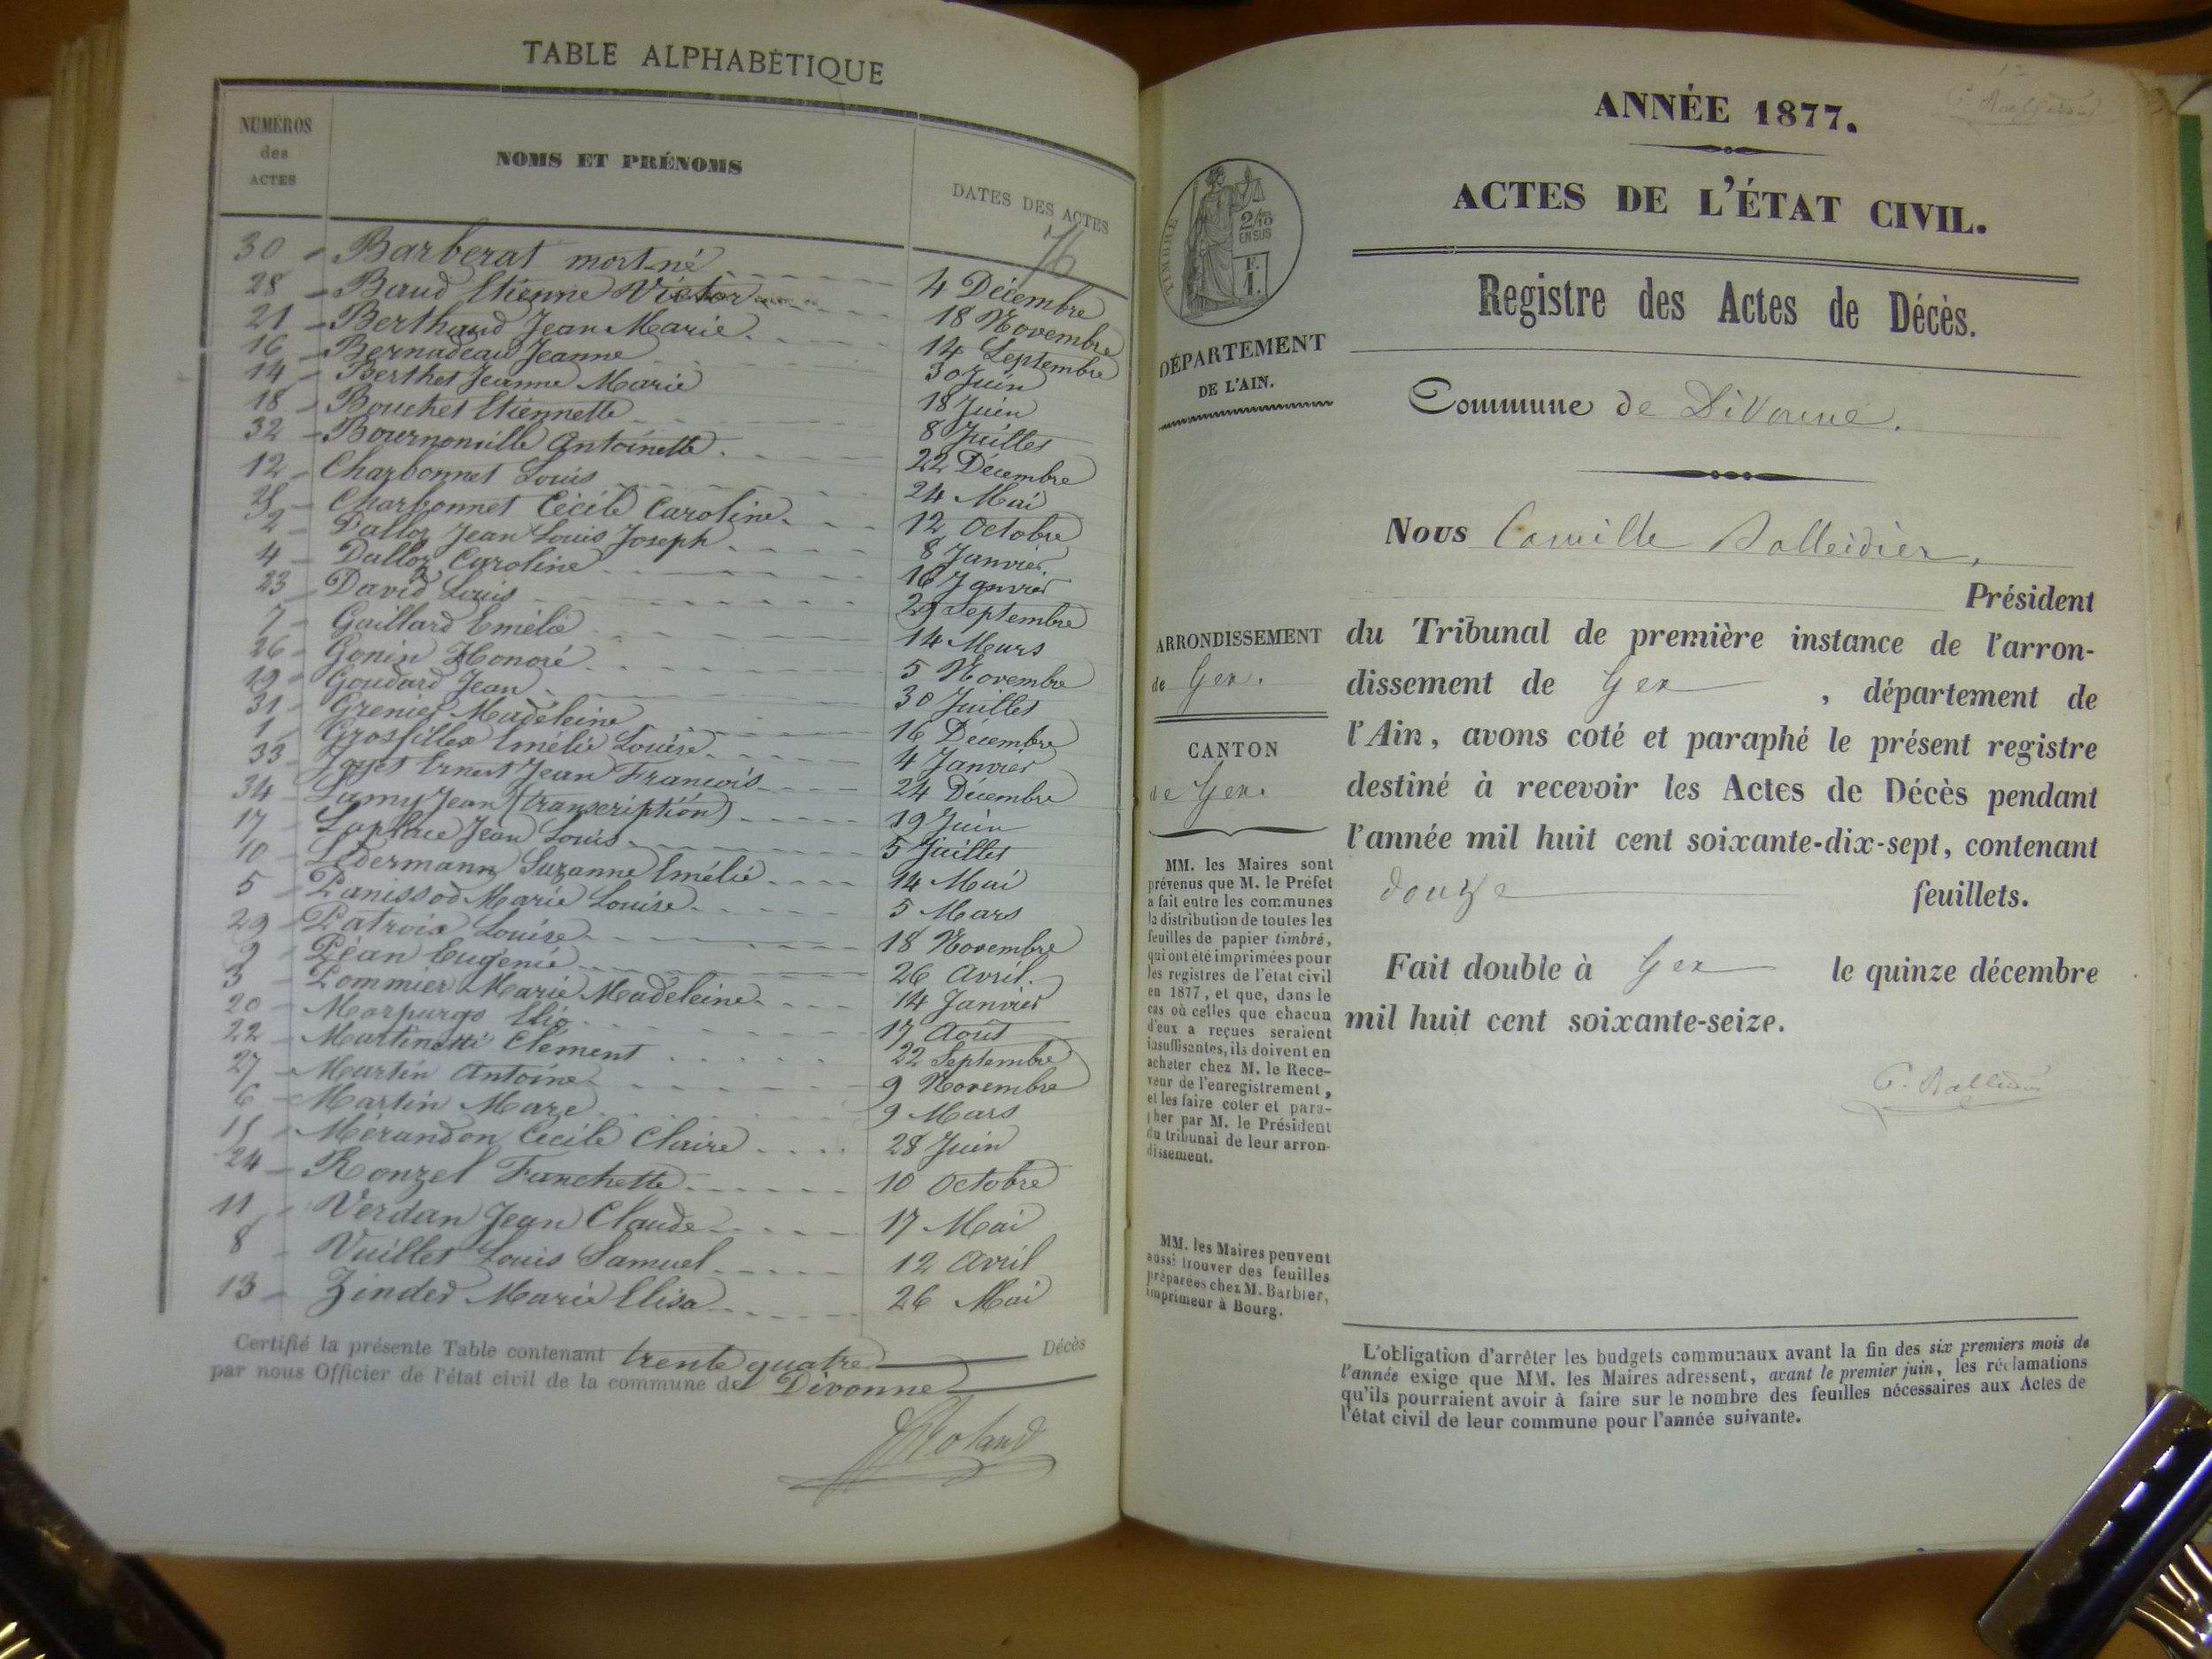 TABLE ALPHABÉTIQUE
NUMÉROS des ACTES
NOMS ET PRÉNOMS
DATES DES ACTES
76
30 - Barberat mort-né 4 Décembre
28 - Baud Etienne Victor 18 Novembre
21 - Berthaud Jean Marie 14 Septembre
16 - Bernadeau Jeanne 30 Juin
14 - Berthet Jeanne Marie 18 Juin
18 - Bouchet Etiennette 8 Juillet
32 - Bournonville Antoinette 22 Décembre
12 - Charbonnet Louis 24 Mai
25 - Charbonnet Cécile Caroline 12 Octobre
2 - Dalloz Jean Louis Joseph 8 Janvier
4 - Dalloz Caroline 16 Janvier
23 - David Louis 29 Septembre
7 - Gaillard Emélie 14 Mars
26 - Gonin Honoré 5 Novembre
19 - Goudard Jean 30 Juillet
31 - Grenier Madeleine 16 Décembre
1 - Grosfillex Emélie Louise 4 Janvier
33 - Jayet Ernest Jean François 24 Décembre
34 - Lamy Jean (transcription) 19 Juin
17 - Laplace Jean Louis 5 Juillet
10 - Ledermann Suzanne Emélie 14 Mai
5 - Panissod Marie Louise 5 Mars
29 - Patroix Louise 18 Novembre
9 - Péan Eugénie 26 Avril
3 - Pommier Marie Madeleine 14 Janvier
20 - Morpurgo Elie 17 Août
22 - Martinetti Clément 22 Septembre
27 - Martin Antoine 9 Novembre
6 - Martin Marc 9 Mars
15 - Mérandon Cécile Claire 28 Juin
24 - Ronzel Fanchette 10 Octobre
11 - Verdan Jean Claude 17 Mai
8 - Vuillet Louis Samuel 12 Avril
13 - Zinder Marie Elisa 26 Mai
Certifié la présente Table contenant trente quatre Décès
par nous Officier de l'état civil de la commune de Divonne
Roland
ANNÉE 1877.
ACTES DE L'ÉTAT CIVIL.
TIMBRE
2/10
EN SUS
F.
1.
Registre des Actes de Décès.
DÉPARTEMENT
DE L'AIN.
Commune de Divonne.
Nous Camille Balleidier,
Président
ARRONDISSEMENT
de Gex.
CANTON
de Gex.
du Tribunal de première instance de l'arron-
dissement de Gex, département de
l'Ain, avons coté et paraphé le présent registre
destiné à recevoir les Actes de Décès pendant
l'année mil huit cent soixante-dix-sept, contenant
douze feuillets.
Fait double à Gex le quinze décembre
mil huit cent soixante-seize.
C. Balleidier
MM. les Maires sont
prévenus que M. le Préfet
a fait entre les communes
la distribution de toutes les
feuilles de papier timbré,
qui ont été imprimées pour
les registres de l'état civil
en 1877, et que, dans le
cas où celles que chacun
d'eux a reçues seraient
insuffisantes, ils doivent en
acheter chez M. le Rece-
veur de l'enregistrement,
et les faire coter et para-
pher par M. le Président
du tribunal de leur arron-
dissement.
MM. les Maires peuvent
aussi trouver des feuilles
préparées chez M. Barbier,
imprimeur à Bourg.
L'obligation d'arrêter les budgets communaux avant la fin des six premiers mois de
l'année exige que MM. les Maires adressent, avant le premier juin, les réclamations
qu'ils pourraient avoir à faire sur le nombre des feuilles nécessaires aux Actes de
l'état civil de leur commune pour l'année suivante.